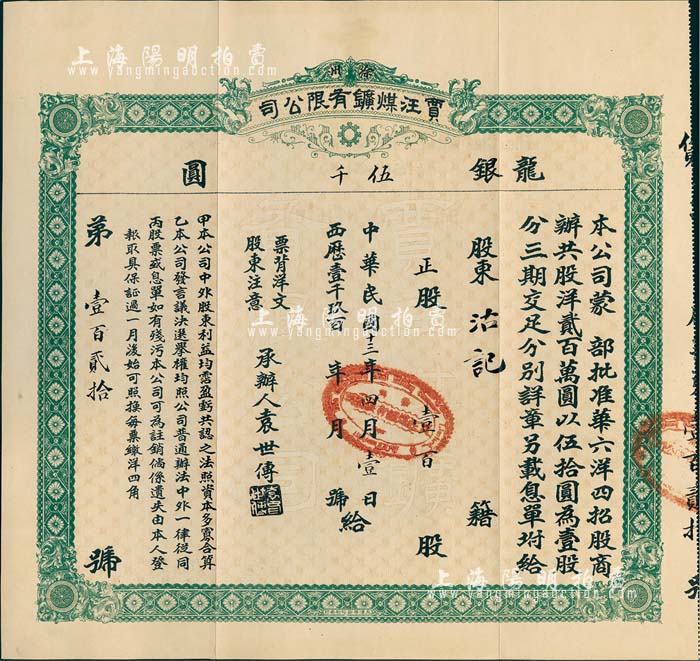 上海陽明拍賣
www.yangmingauction.com
徐州
賈汪煤鑛有限公司
龍銀 伍千 圓
本公司蒙 部批准華六洋四招股商
辦共股洋貳百萬圓以伍拾圓為壹股
分三期交足分別詳章另載息單坿給
股東 沽記 籍
正股 壹百 股
中華民國十三年四月壹日
西歷壹千玖百 年 月 號給
票背洋文
股東注意
承辦人袁世傳
甲本公司中外股東利益均霑盈虧共認之法照資本多寡合算
乙本公司發言議決選舉權均照公司普通辦法中外一律從同
丙股票或息單如有殘污本公司可為註銷倘係遺失由本人登
報取具保証過一月後始可照換每票繳洋四角
第 壹百貳拾 號
上海陽明拍賣
www.yangmingauction.com
上海陽明拍賣
www.yangmingauction.com